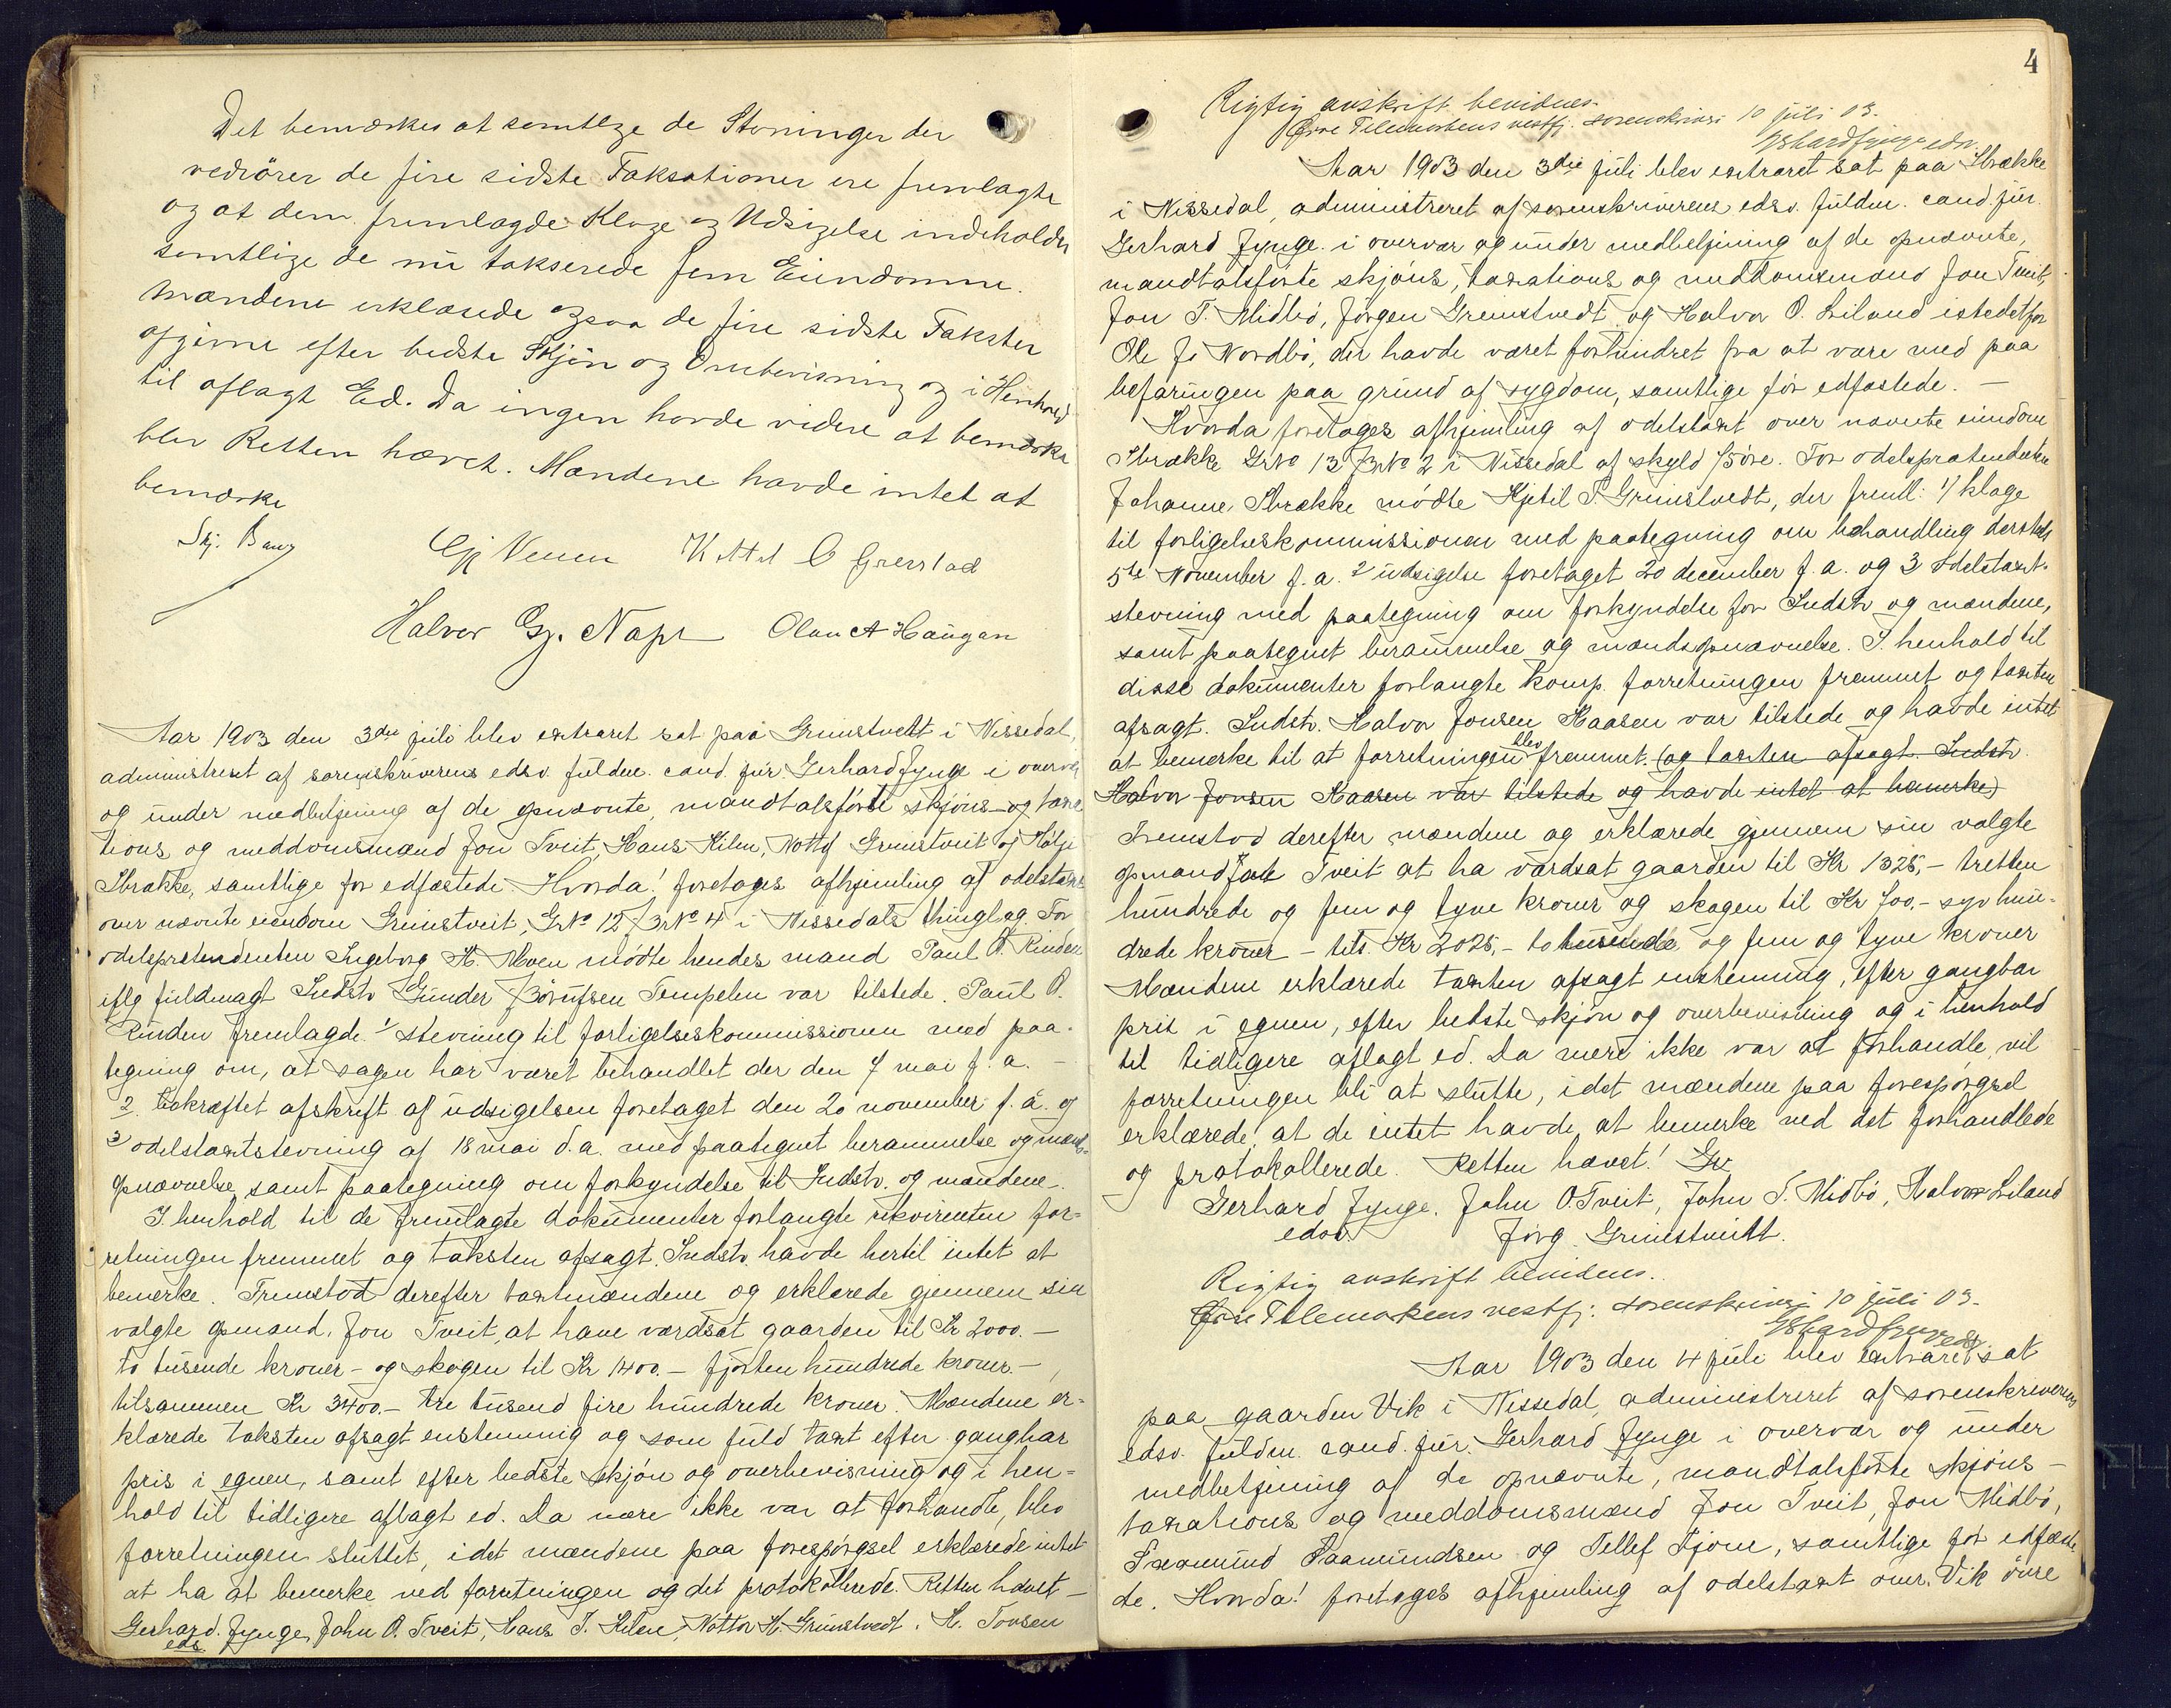 Det bemærkes at samtlige de Stevninger der
vedrører de fire sidste Taksationer ere fremlagte
og at dem fremlagde Klage og Udsigelse indeholder
samtlige de nu takserede fem Eiendomme.
Mændene erklærede ogsaa de fire sidste Takster
afgivne efter bedste Skjøn og Overbevisning og i Henhold
til aflagt Ed. Da ingen havde videre at bemærke
blev Retten hævet. Mændene havde intet at
bemærke
Skj. Bang
Gj Veum Kittel O Grerstad
Halver Gj. Napr Olav A Haugan
Aar 1903 den 3die juli blev extraret sat paa Grimstvedt i Nissedal,
administreret af sorenskriverens edsv. fuldm. cand. jur Gerhard Jynge i overvær
og under medbetjening af de opnævnte, mandtalsførte skjøns og taxa
tions og meddomsmænd Jon Tveit, Hans Kilen, Nottof Grimstveit og Hølje
Strække, samtlige før edfæstede. Hvorda! foretages afhjemling af odelstaxt
over nævnte eiendom Grimstveit, GrNo 12 BrNo 4 i Nissedals thinglag. For
odelspretendenten Ingeborg H. Moen mødte hendes mand Paul O. Rinden
iflg fuldmagt Indstv Gunder Børufsen Tempelen var tilstede. Paul O.
Rinden fremlagde 1/ stevning til forligelseskommissionen med paa-
tegning om, at sagen har været behandlet der den 7 mai f. a. -
2. bekræftet afskrift af udsigelsen foretaget den 20 november f. a. og
3/ odelstaxtstevning af 18 mai d. a. med paategnet berammelse og mænds-
opnævnelse samt paategning om forkyndelse til Indstv. og mændene.
I henhold til de fremlagte dokumenter forlangte rekvirenten for-
retningen fremmet og taksten afsagt. Indstv. havde hertil intet at
bemerke. Fremstod derefter taxtmændene og erklærede gjennem sin
valgte opmand, Jon Tveit, at have værdsat gaarden til Kr 2000.-
to tusende kroner - og skogen til Kr 1400.- fjorten hundrede kroner.-
tilsammen Kr 3400.- tre tusend fire hundrede kroner. Mændene er-
klærede taksten afsagt enstemmig og som fuld taxt efter gangbar
pris i egnen, samt efter bedste skjøn og overbevisning og i hen-
hold til tidligere aflagt ed. Da mere ikke var at forhandle, blev
forretningen sluttet, idet mændene paa forespørgsel erklærede intet
at ha at bemerke ved forretningen og det protokollerede. Retten hævet -
Gerhard Jynge, John O. Tveit, Hans J. Kilen, Nottov H. Grimstvedt. H. Tovsen
eds.
4
Rigtig avskrift bevidnes.
Øvre Telemarkens vestfj. sorenskriveri 10 juli 03.
Gerhard Jynge edsv.
Aar 1903 den 3die juli blev extraret sat paa Strække
i Nissedal, administreret af sorenskriverens edsv. fuldm. cand. jur.
Gerhard Jynge i overvær og under medbetjening af de opnævnte,
mandtalsførte skjøns, taxations og meddomsmænd Jon Tveit,
Jon T. Midbø, Jørgen Greimstvedt og Halvor O. Liland istedetfor
Ole Js Nordbø, der havde været forhindret fra at være med paa
befaringen paa grund af sygdom, samtlige før edfæstede. -
Hvorda foretages afhjemling af odelstaxt over nævnte eiendom
Strække GrNo 13 BrNo 2 i Nissedal af skyld 15 øre. For odelspretendenten
Johanne Strække mødte Kjetil S. Grimstvedt, der freml: 1/ klage
til forligelseskommissionen med paategning om behandling dersteds
5te November f. a. 2/ udsigelse foretaget 20 december f. a. og 3 Odelstaxt-
stevning med paategning om forkyndelse for Indstv og mændene,
samt paategnet berammelse og mandsopnævnelse. I henhold til
disse dokumenter forlangte komp. forretningen fremmet og taxten
afsagt. Indstv. Halvor Jonsen Kaasen var tilstede og havde intet
at bemerke til at forretningen blev fremmet. (og taxten afsagt. Indstv.
Halvor Jonsen Kaasen var tilstede og havde intet at bemerke)
Fremstod derefter mændene og erklærede gjennem sin valgte
opmand Jon Tveit at ha værdsat gaarden til Kr 1325,- tretten
hundrede og fem og tyve kroner og skogen til Kr 700.- syv hun-
drede kroner - tils. Kr 2025,- to tusende og fem og tyve kroner
Mændene erklærede taxten afsagt enstemmig, efter gangbar
pris i egnen, efter bedste skjøn og overbevisning og i henhold
til tidligere aflagt ed. Da mere ikke var at forhandle, vil
forretningen bli at slutte, idet mændene paa forespørgsel
erklærede, at de intet havde at bemerke ved det forhandlede
og protokollerede. Retten hævet!
Gerhard Jynge. John O. Tveit, John T. Midbø, Halvor Liland
edsv. Jørg. Grimstveitt.
Rigtig avskrift bevidnes.
Øvre Telemarkens vestfj: sorenskriveri 10 juli 03.
Gerhard Jynge edsv.
Aar 1903 den 4 juli blev extraret sat
paa gaarden Vik i Nissedal, administreret af sorenskriverens
edsv. fuldm. cand. jur. Gerhard Jynge i overvær og under
medbetjening af de opnævnte, mandtalsførte skjøns-
taxations og meddomsmænd Jon Tveit, Jon Midbø,
Sæamund Aamundsen og Tellef Tjom, samtlige før edfæste-
de. Hvorda! foretages afhjemling af odelstaxt over Vik øvre